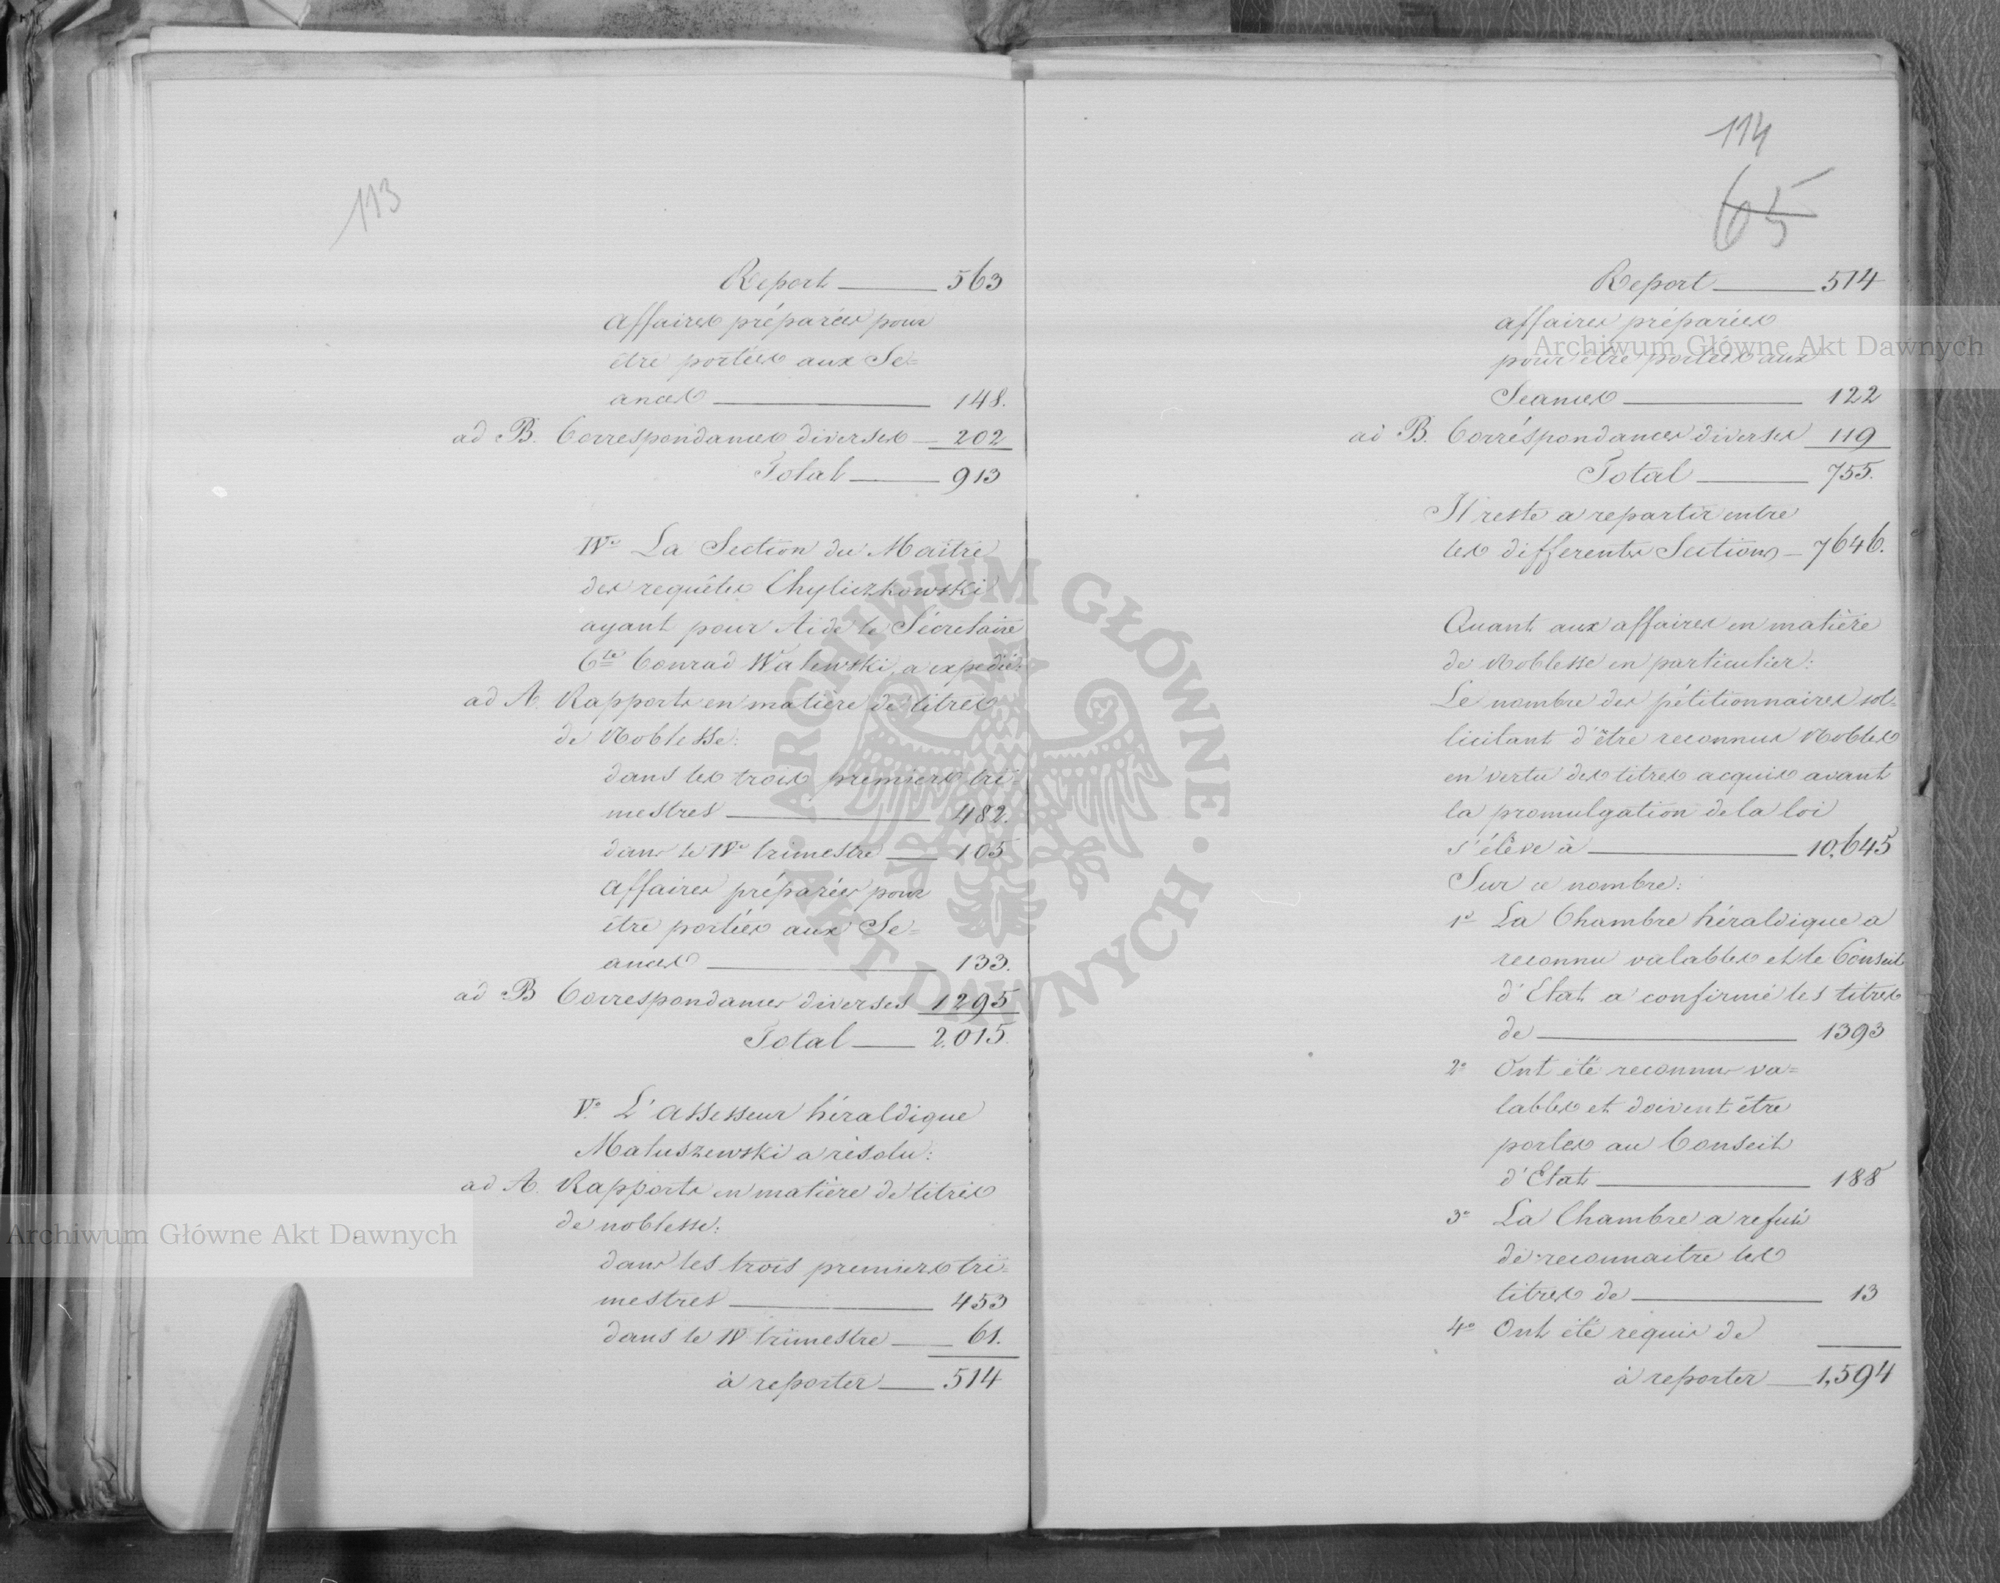 113
Report — 563
affaires préparées pour
être portées aux Sé=
ances — 148.
ad B. Correspondances diverses — 202
Total — 913
IV° La Section du Maitre
des requêtes Chyliczkowski
ayant pour Aide le Sécretaire
Cte Conrad Walewski, a expedié:
ad A. Rapports en matière de titres
de Noblesse:
dans les trois premiers tri=
mestres — 482.
dans le IVe trimestre — 105
affaires préparées pour
être portées aux Sé=
ances — 133.
ad B Correspondances diverses 1295
Total — 2,015.
V° L'assesseur héraldique
Matuszewski a résolu:
ad A. Rapports en matière de titres
de noblesse:
dans les trois premiers tri=
mestres — 453
dans le IV trimestre — 61.
à reporter — 514
114
65
Report — 514
affaires préparées
pour être portées aux
Seances — 122
ad B. Corréspondances diverses 119
Total — 755.
Il reste a repartir entre
les differentes Sections — 7646.
Quant aux affaires en matière
de Noblesse en particulier:
Le nombre des pétitionnaires sol=
licitant d'être reconnus Nobles
en vertu des titres acquis avant
la promulgation de la loi
s'élève à — 10,645
Sur ce nombre:
1° La Chambre héraldique a
reconnu valables et le Conseil
d'Etat a confirmé les titres
de — 1393
2° Ont été reconnus va=
lables et doivent être
portés au Conseil
d'Etat — 188
3° La Chambre a refusé
de reconnaitre les
titres de — 13
4° Ont été requis de
à reporter — 1,594
Archiwum Główne Akt Dawnych
Archiwum Główne Akt Dawnych
ARCHIWUM GŁÓWNE · AKT DAWNYCH ·